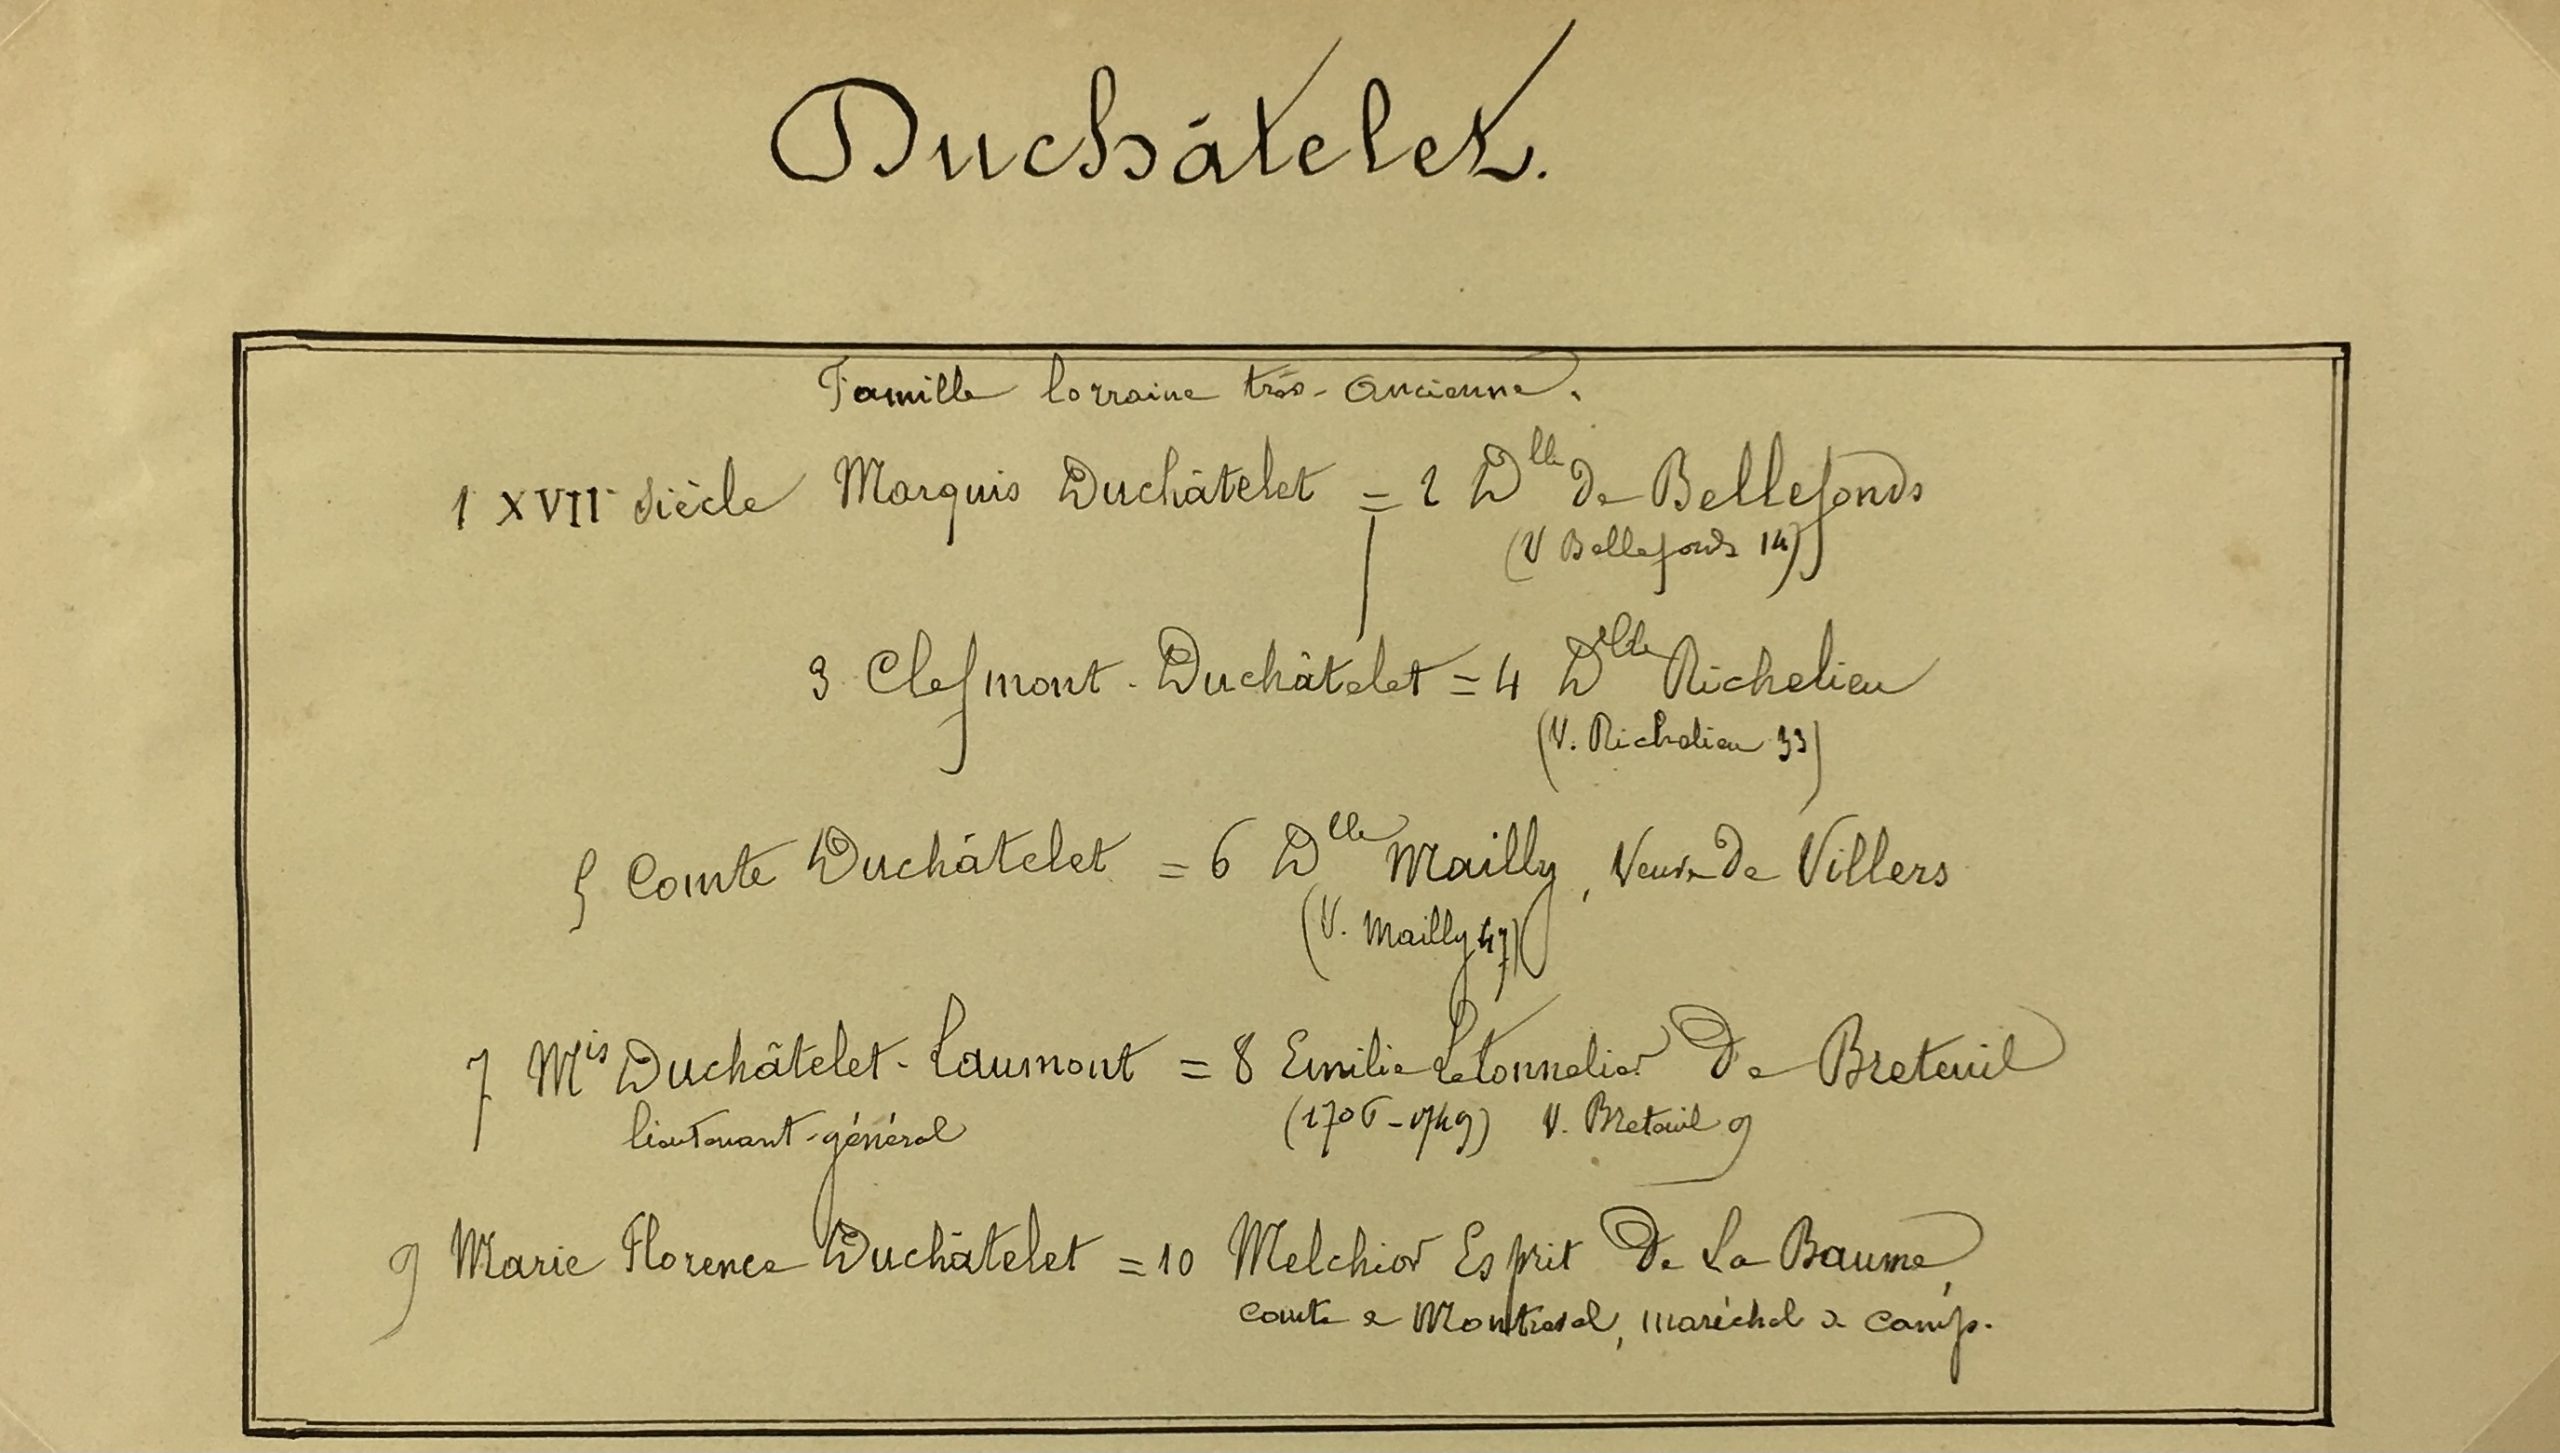 Duchâtelet.
Famille lorraine très-ancienne.
1 XVIIe siècle Marquis Duchâtelet = 2 Dlle de Bellefonds
(V Bellefonds 14)
3 Clefmont-Duchâtelet = 4 Dlle Richelieu
(V. Richelieu 33)
5 Comte Duchâtelet = 6 Dlle Mailly, Veuve de Villers
(V. Mailly 47)
7 Mis Duchâtelet-Laumont = 8 Emilie Letonnelier De Breteuil
lieutenant-général (1706-1749) V. Breteuil 9
9 Marie Florence Duchâtelet = 10 Melchior Esprit De La Baume,
comte de Montrevel, maréchal de camp.